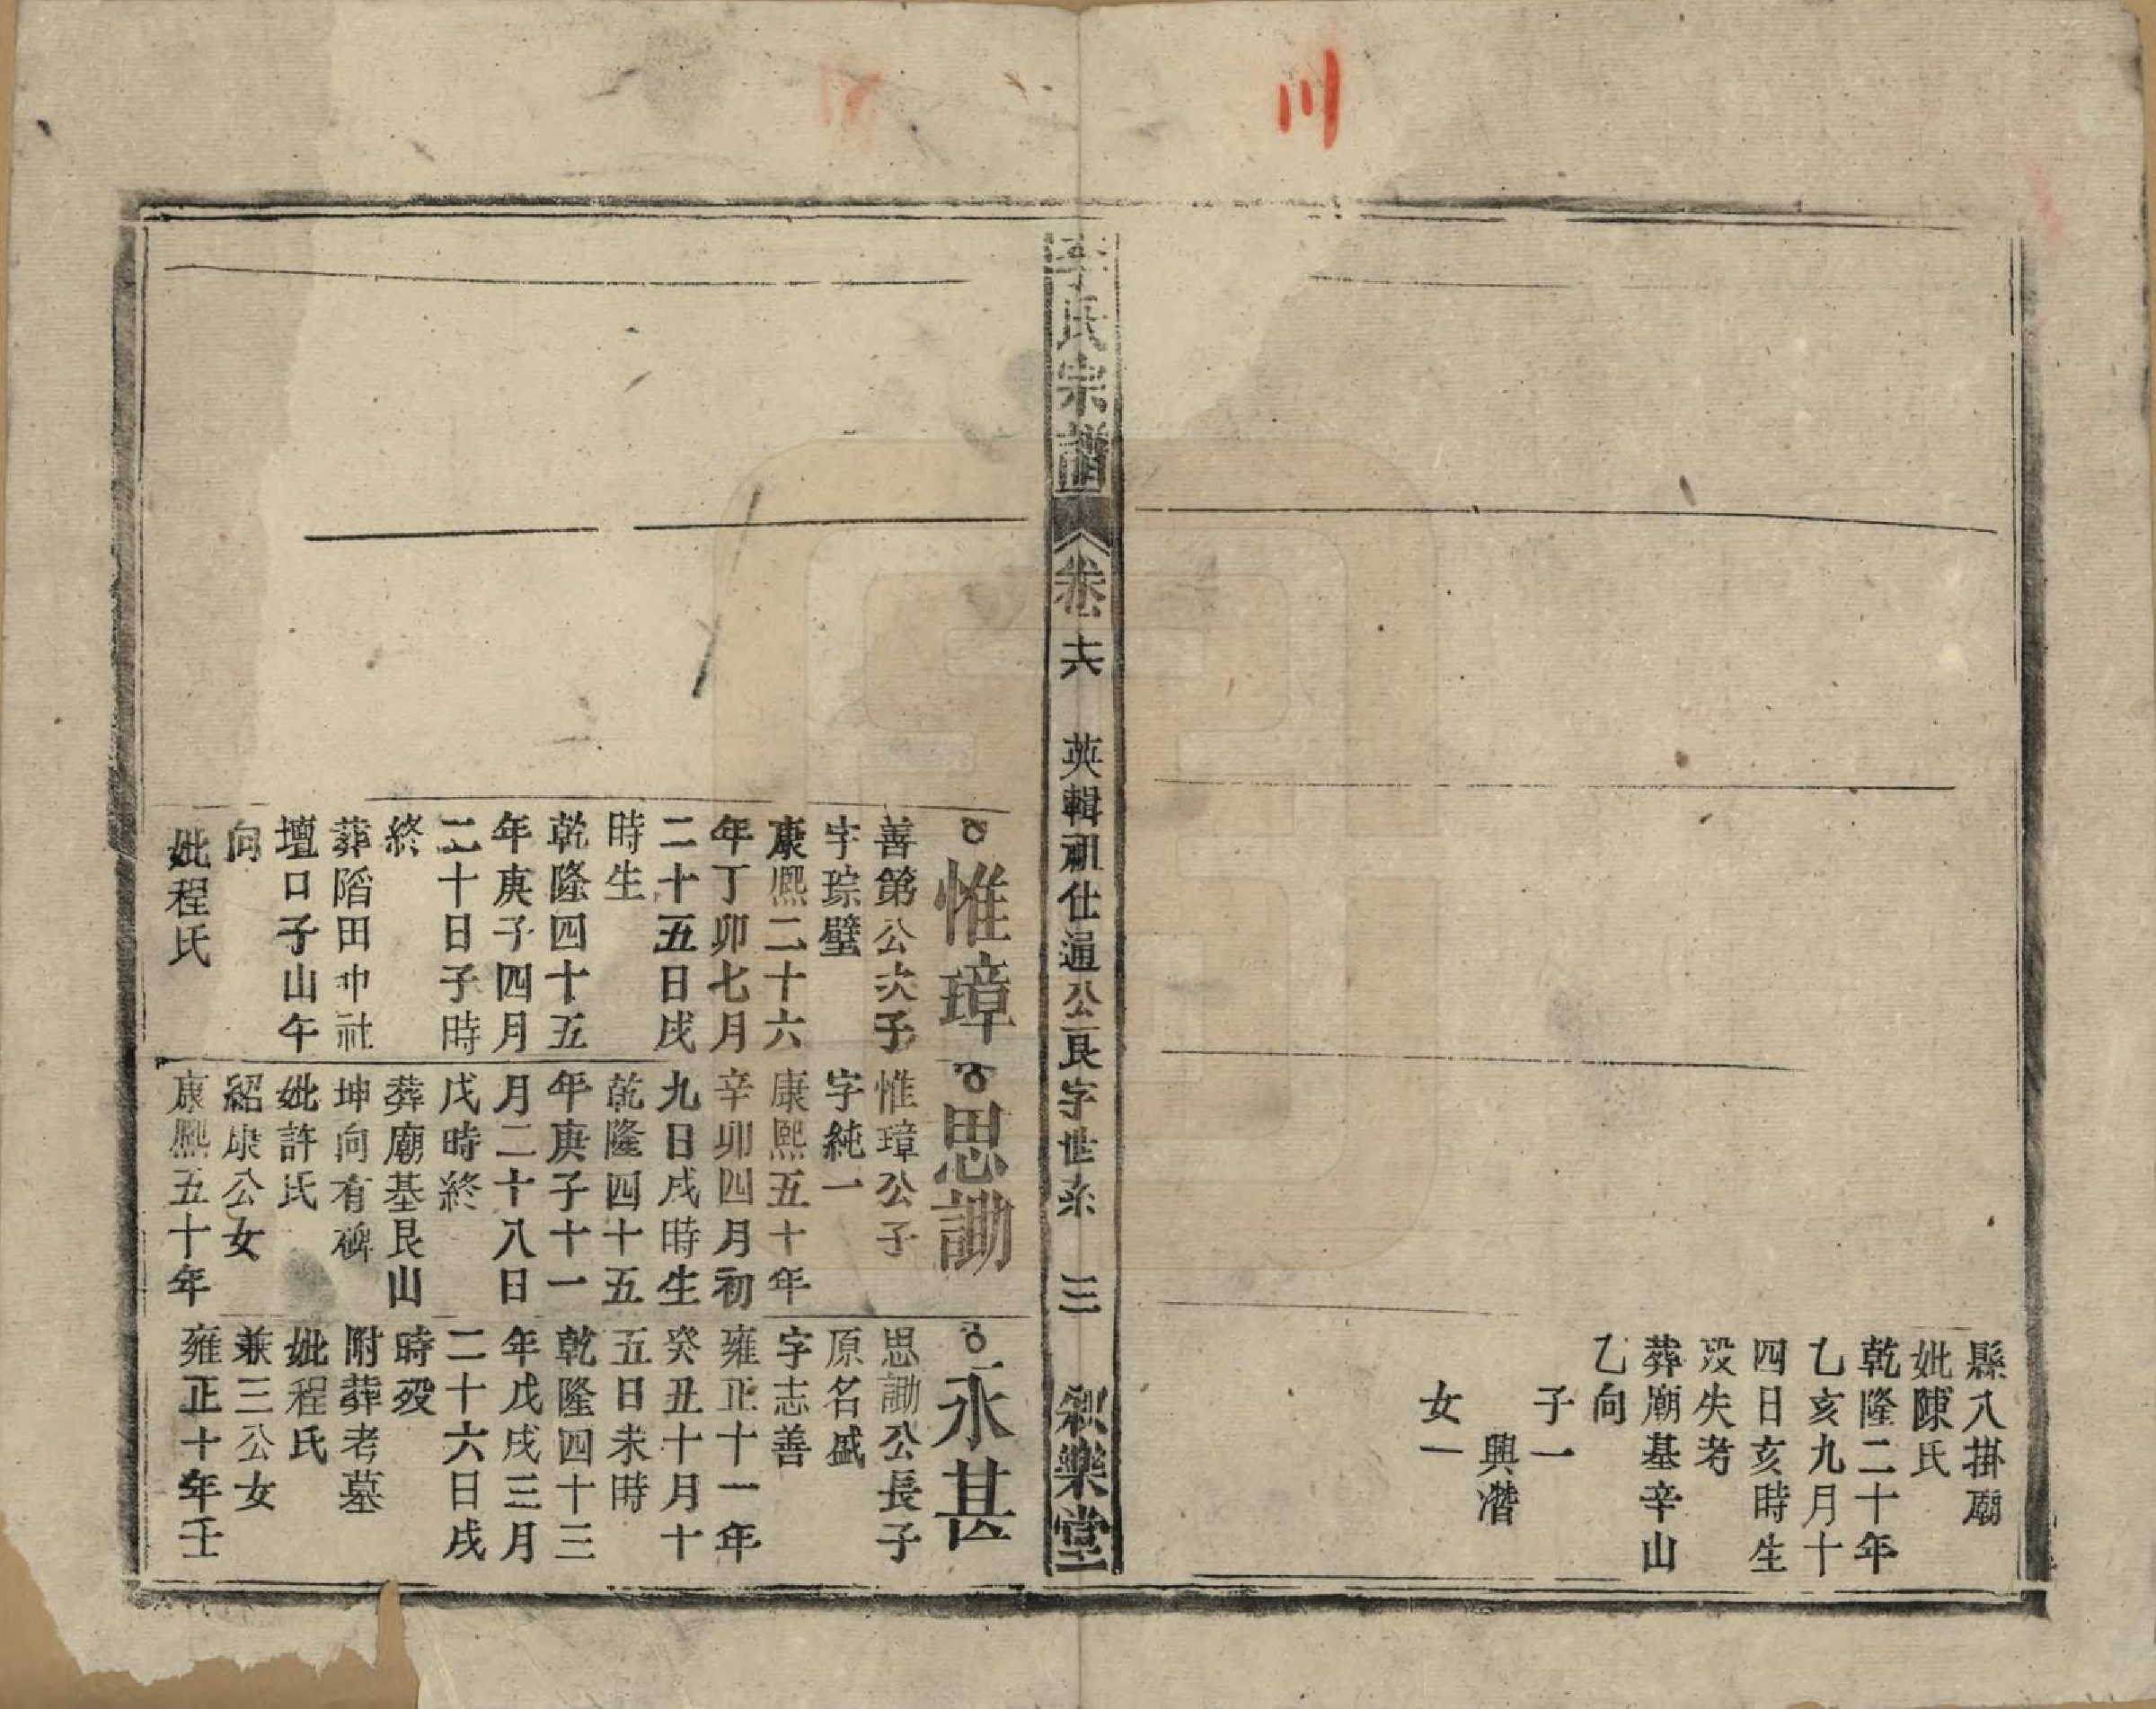 川
縣八掛廟
妣陳氏
乾隆二十年
乙亥九月十
四日亥時生
歿失考
葬廟基辛山
乙向
子一
興潛
女一
李氏宗譜
卷六
英輯祖仕通公良字世系
三
敘樂堂
惟璋
善第公次子
字琮璧
康熙二十六
年丁卯七月
二十五日戌
時生
乾隆四十五
年庚子四月
二十日子時
終
葬陷田中社
壇口子山午
向
妣程氏
思勱
惟璋公子
字純一
康熙五十年
辛卯四月初
九日戌時生
乾隆四十五
年庚子十一
月二十八日
戌時終
葬廟基艮山
坤向有碑
妣許氏
紹康公女
康熙五十年
永甚
思勱公長子
原名盛
字志善
雍正十一年
癸丑十月十
五日未時
乾隆四十三
年戊戌三月
二十六日戌
時歿
附葬考墓
妣程氏
兼三公女
雍正十年壬